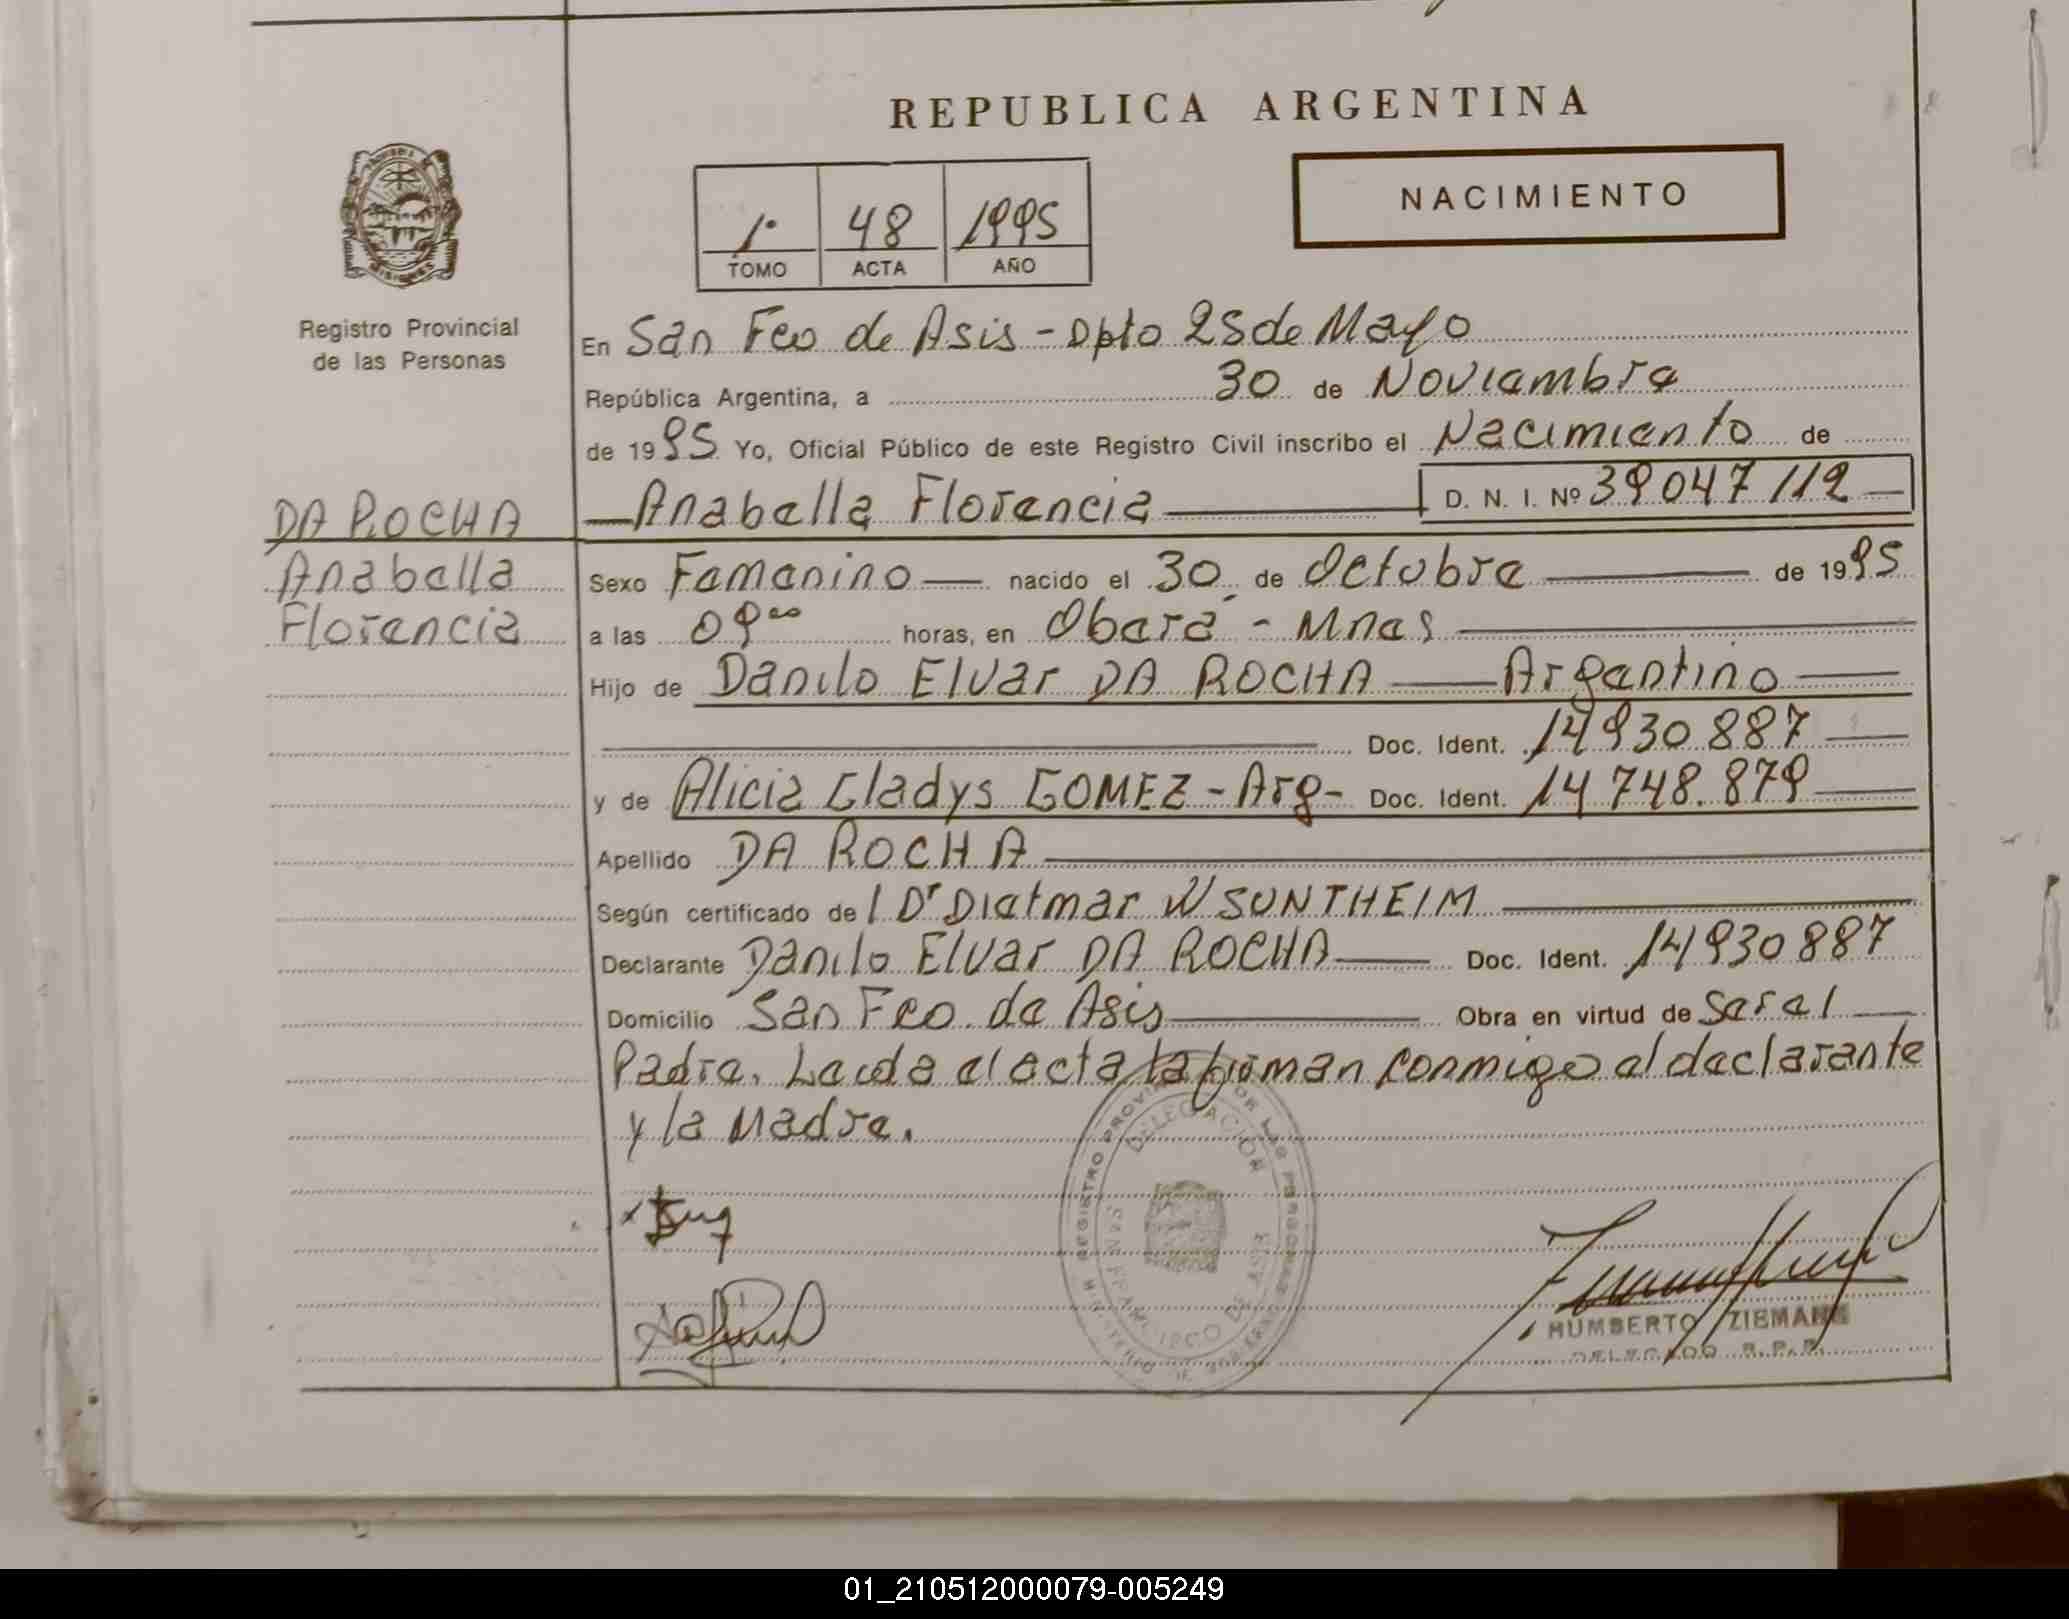 REPUBLICA ARGENTINA
NACIMIENTO
1º 48 1995
TOMO ACTA AÑO
Registro Provincial
de las Personas
En San Fco de Asis - Dpto 25 de Mayo
República Argentina, a 30 de Noviembre
de 1995 Yo, Oficial Público de este Registro Civil inscribo el Nacimiento de
Anabella Florencia D. N. I. Nº 39047112
DA ROCHA
Anabella
Florencia
Sexo Femenino nacido el 30 de Octubre de 1995
a las 09ºº horas, en Oberá - Mnes
Hijo de Danilo Elvar DA ROCHA Argentino
Doc. Ident. 14930887
y de Alicia Gladys GOMEZ - Arg - Doc. Ident. 14748.879
Apellido DA ROCHA
Según certificado del Dr Dietmar W SUNTHEIM
Declarante Danilo Elvar DA ROCHA Doc. Ident. 14930887
Domicilio San Fco. de Asis Obra en virtud de Ser el
Padre. Leida el acta la firman conmigo el declarante
y la Madre.
REGISTRO PROVINCIAL DE LAS PERSONAS
DELEGACION
SAN FRANCISCO DE ASIS
MINISTERIO DE GOBIERNO
HUMBERTO ZIEMANN
DELEGADO R.P.P.
01_210512000079-005249